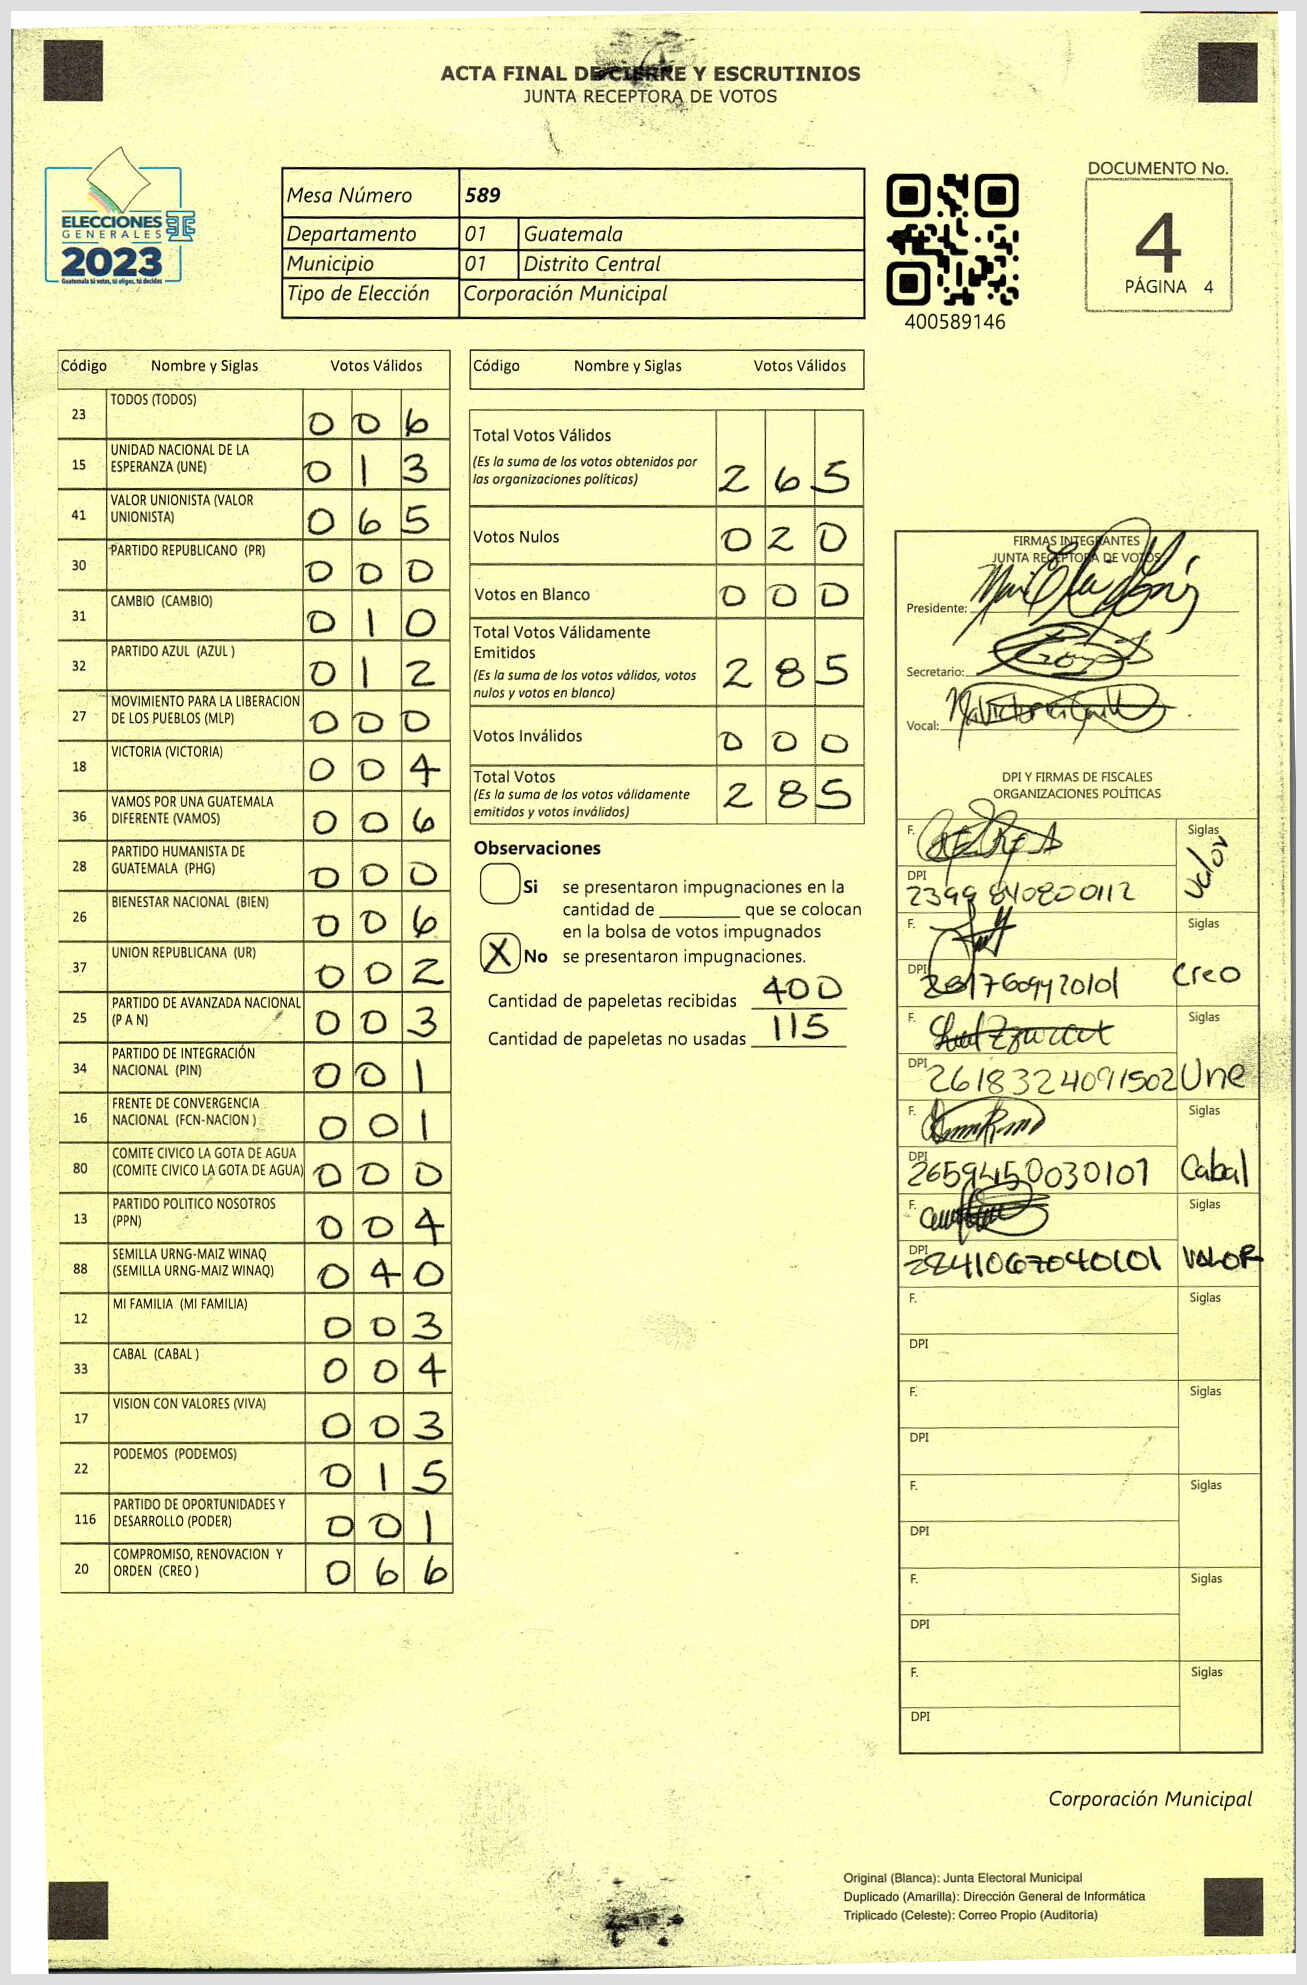 ACTA FINAL DE CIERRE Y ESCRUTINIOS
JUNTA RECEPTORA DE VOTOS
ELECCIONES
GENERALES
2023
Guatemala tú votas, tú eliges, tú decides
Mesa Número 589
Departamento 01 Guatemala
Municipio 01 Distrito Central
Tipo de Elección Corporación Municipal
400589146
DOCUMENTO No.
4
PÁGINA 4
Código Nombre y Siglas Votos Válidos
23 TODOS (TODOS) 0 0 6
15 UNIDAD NACIONAL DE LA ESPERANZA (UNE) 0 1 3
41 VALOR UNIONISTA (VALOR UNIONISTA) 0 6 5
30 PARTIDO REPUBLICANO (PR) 0 0 0
31 CAMBIO (CAMBIO) 0 1 0
32 PARTIDO AZUL (AZUL ) 0 1 2
27 MOVIMIENTO PARA LA LIBERACION DE LOS PUEBLOS (MLP) 0 0 0
18 VICTORIA (VICTORIA) 0 0 4
36 VAMOS POR UNA GUATEMALA DIFERENTE (VAMOS) 0 0 6
28 PARTIDO HUMANISTA DE GUATEMALA (PHG) 0 0 0
26 BIENESTAR NACIONAL (BIEN) 0 0 6
37 UNION REPUBLICANA (UR) 0 0 2
25 PARTIDO DE AVANZADA NACIONAL (P A N) 0 0 3
34 PARTIDO DE INTEGRACIÓN NACIONAL (PIN) 0 0 1
16 FRENTE DE CONVERGENCIA NACIONAL (FCN-NACION ) 0 0 1
80 COMITE CIVICO LA GOTA DE AGUA (COMITE CIVICO LA GOTA DE AGUA) 0 0 0
13 PARTIDO POLITICO NOSOTROS (PPN) 0 0 4
88 SEMILLA URNG-MAIZ WINAQ (SEMILLA URNG-MAIZ WINAQ) 0 4 0
12 MI FAMILIA (MI FAMILIA) 0 0 3
33 CABAL (CABAL ) 0 0 4
17 VISION CON VALORES (VIVA) 0 0 3
22 PODEMOS (PODEMOS) 0 1 5
116 PARTIDO DE OPORTUNIDADES Y DESARROLLO (PODER) 0 0 1
20 COMPROMISO, RENOVACION Y ORDEN (CREO ) 0 6 6
Código Nombre y Siglas Votos Válidos
Total Votos Válidos
(Es la suma de los votos obtenidos por
las organizaciones políticas) 2 6 5
Votos Nulos 0 2 0
Votos en Blanco 0 0 0
Total Votos Válidamente
Emitidos
(Es la suma de los votos válidos, votos
nulos y votos en blanco) 2 8 5
Votos Inválidos 0 0 0
Total Votos
(Es la suma de los votos válidamente
emitidos y votos inválidos) 2 8 5
Observaciones
Si se presentaron impugnaciones en la
cantidad de ________ que se colocan
en la bolsa de votos impugnados
X No se presentaron impugnaciones.
Cantidad de papeletas recibidas 400
Cantidad de papeletas no usadas 115
FIRMAS INTEGRANTES
JUNTA RECEPTORA DE VOTOS
Presidente:
Secretario:
Vocal:
DPI Y FIRMAS DE FISCALES
ORGANIZACIONES POLÍTICAS
F. Siglas
DPI 2399 840800112 Valor
F. Siglas
DPI Creo
F. Siglas
DPI 2618324091502 Une
F. Siglas
DPI 2659450030101 Cabal
F. Siglas
DPI 2841067040101 VALOR
F. Siglas
DPI
F. Siglas
DPI
F. Siglas
DPI
F. Siglas
DPI
F. Siglas
DPI
Corporación Municipal
Original (Blanca): Junta Electoral Municipal
Duplicado (Amarilla): Dirección General de Informática
Triplicado (Celeste): Correo Propio (Auditoria)